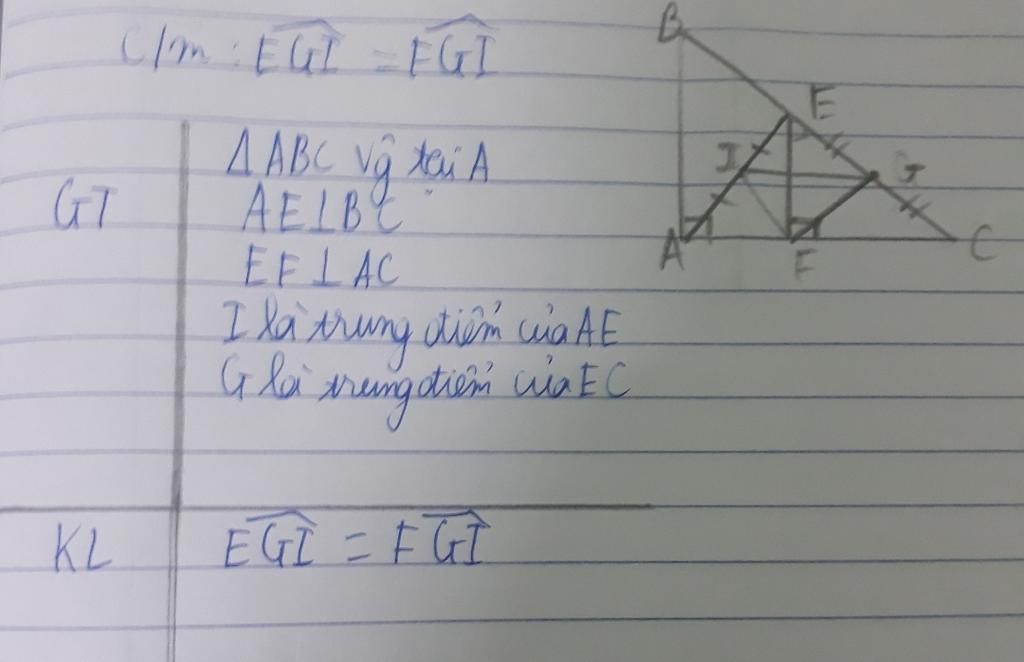 C/m : EGI = FGI
GT
Δ ABC vg tại A
AE⊥BC
EF⊥AC
I là trung điểm của AE
G là trung điểm của EC
KL
EGI = FGI
B
E
I
G
A
F
C